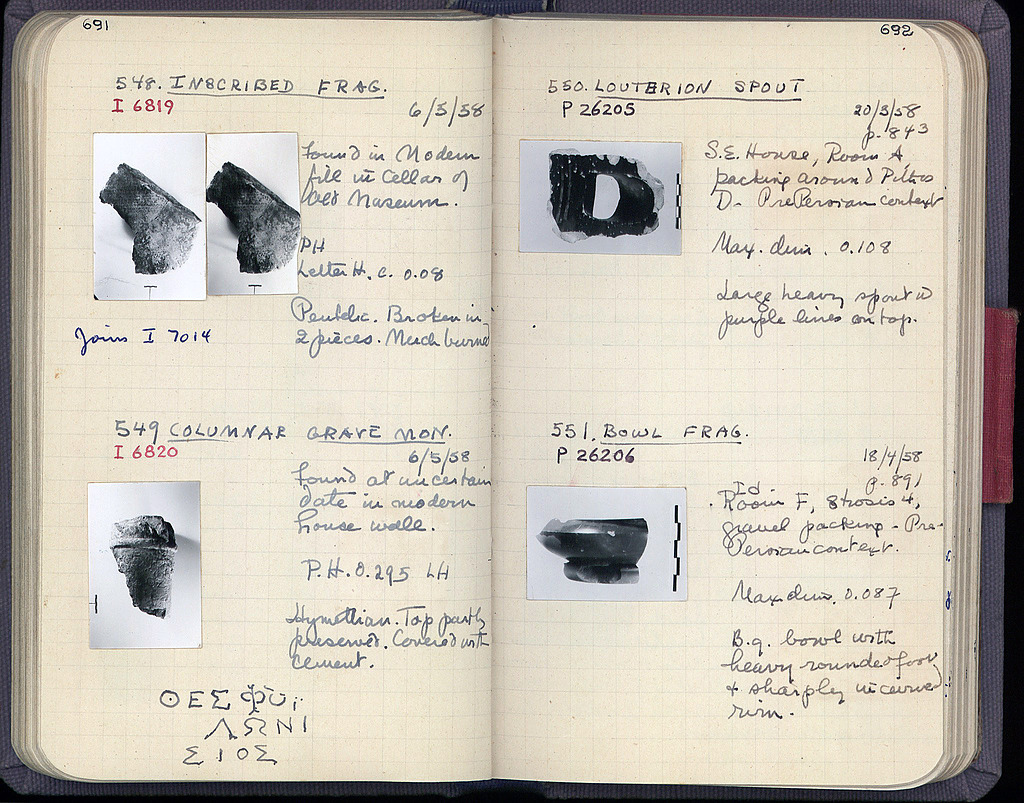 691
548. INSCRIBED FRAG.
I 6819
6/5/58
Found in Modern
fill in cellar of
Old Museum.
PH
Letter H. c. 0.08
Pentelic. Broken in
2 pieces. Much burned
Joins I 7014
549 COLUMNAR GRAVE MON.
I 6820
6/5/58
Found at uncertain
date in modern
house wall.
P.H. 0.295 LH
Hymettian. Top partly
preserved. Covered with
cement.
ΘΕΣΦΥ
ΛΩΝΙ
ΣΙΟΣ
692
550. LOUTERION SPOUT
P 26205
20/3/58
p. 843
S.E. House, Room A,
packing around Pithos
D - PrePersian context
Max. dim. 0.108
Large heavy spout w
purple lines on top.
551. BOWL FRAG.
P 26206
18/4/58
p. 891
Id.
Room F, Strosis 4,
gravel packing - Pre-
Persian context.
Max dim. 0.087
B.g. bowl with
heavy rounded foot
+ sharply incurved
rim.